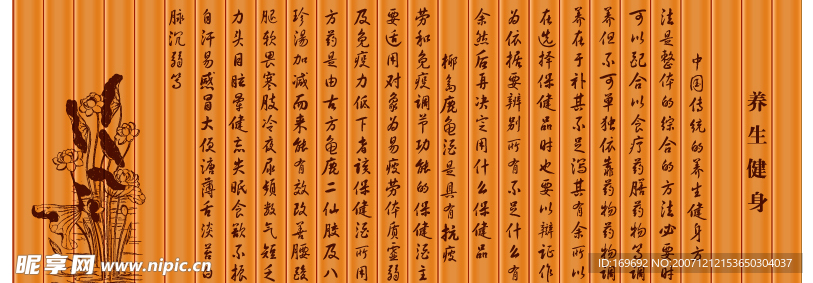 养生健身
中国传统的养生健身方
法是整体的综合的方法必要时
可以配合以食疗药膳药物等调
养但不可单独依靠药物药物调
养在于补其不足泻其有余所以
在选择保健品时也要以辩证作
为依据要辨别所有不足什么有
余然后再决定用什么保健品
椰岛鹿龟酒是具有抗疲
劳和免疫调节功能的保健酒主
要适用对象为易疲劳体质虚弱
及免疫力低下者该保健酒所用
方药是由古方龟鹿二仙胶及八
珍汤加减而来能有效改善腰酸
腿软畏寒肢冷夜尿频数气短乏
力头目眩晕健忘失眠食欲不振
自汗易感冒大便溏薄舌淡苔白
脉沉弱等
昵享网 www.nipic.cn
ID:169692 NO:20071212153650304037